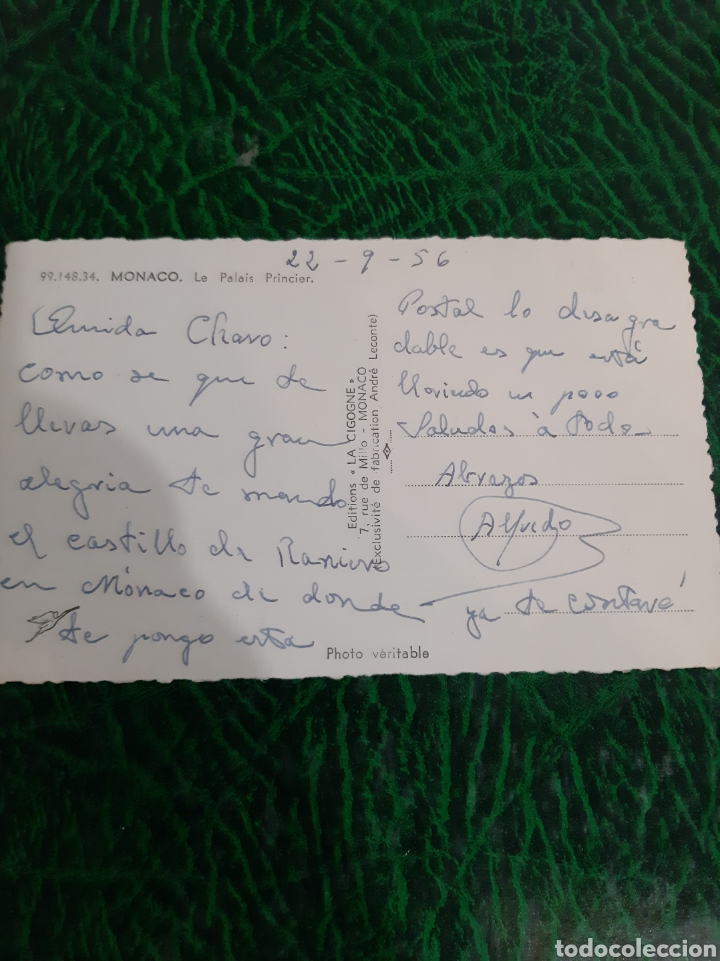 22 - 9 - 56
99.148.34. MONACO. Le Palais Princier.
Querida Charo:
como se que te
llevas una gran
alegria te mando
el castillo de Raniero
en Mónaco de donde
te pongo esta
Postal lo desagra
dable es que está
lloviendo un poco
Saludos à todos
Abrazos
Alfredo
ya te contaré
Editions « LA CIGOGNE »
7, rue de Millo - MONACO
Exclusivité de fabrication André Leconte
Photo véritable
todocoleccion